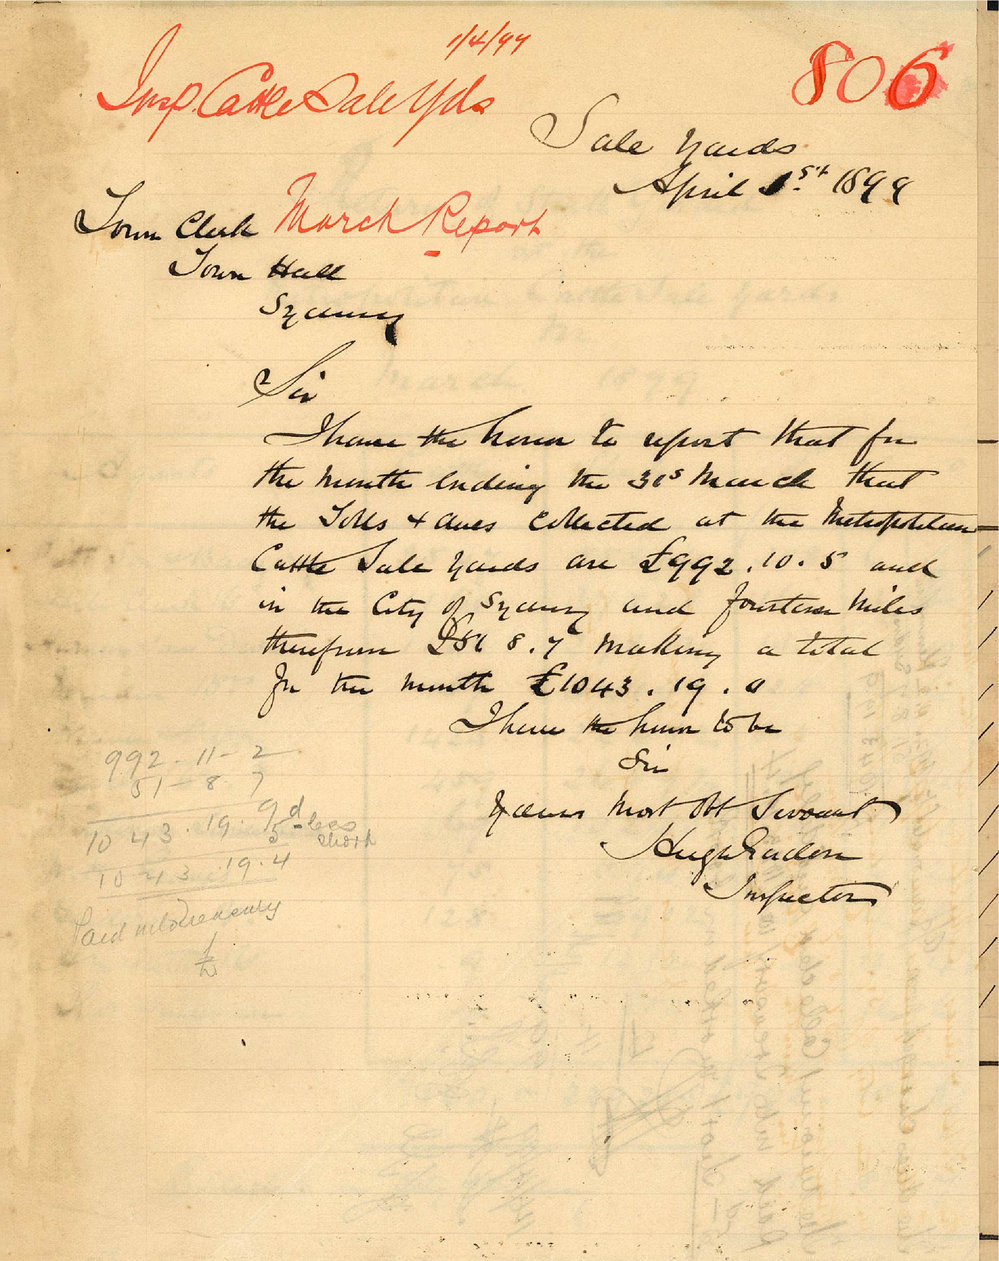 1/4/99
806
Insp. Cattle Sale Yds
Sale Yards
April 1st 1899
Town Clerk March Report
Town Hall
Sydney
Sir
I have the honor to report that for
the month ending the 31s March that
the Tolls & dues collected at the Metropolitan
Cattle Sale Yards are £992.10.5 and
in the City of Sydney and fourteen Miles
therefrom £51 8.7 making a total
for the month £1043.19.0
I have the honor to be
Sir
Yours Most Obt Servant
Hugh
Inspector
992.11-2
51-8.7
1043.19.9
5 d less short
1043.19.4
Paid into Treasury